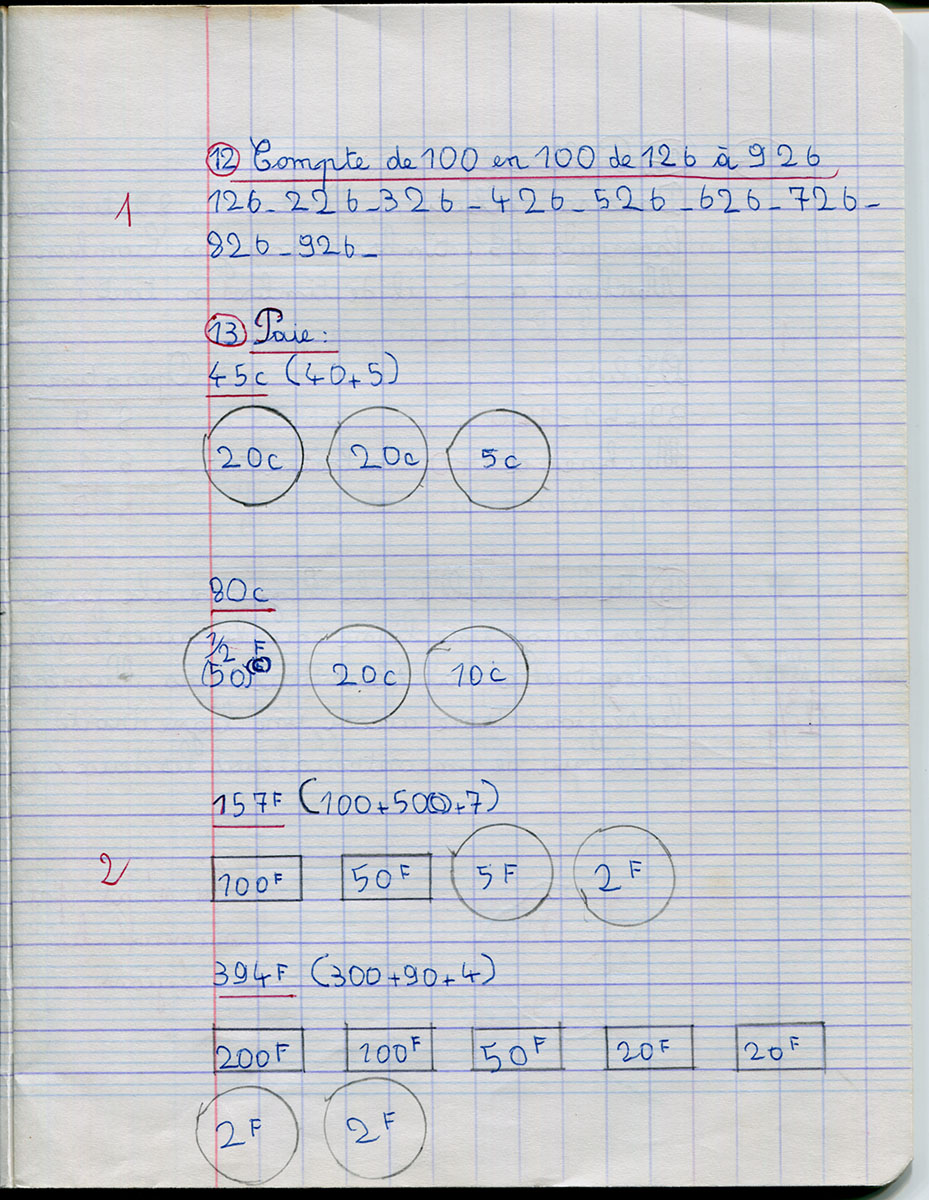 12 Compte de 100 en 100 de 126 à 926
1 126_226_326_426_526_626_726_
826_926_
13 Paie :
45c (40+5)
20c 20c 5c
80c
1/2 F
(50) 20c 10c
157F (100+500+7)
2 100F 50F 5F 2F
394F (300+90+4)
200F 100F 50F 20F 20F
2F 2F